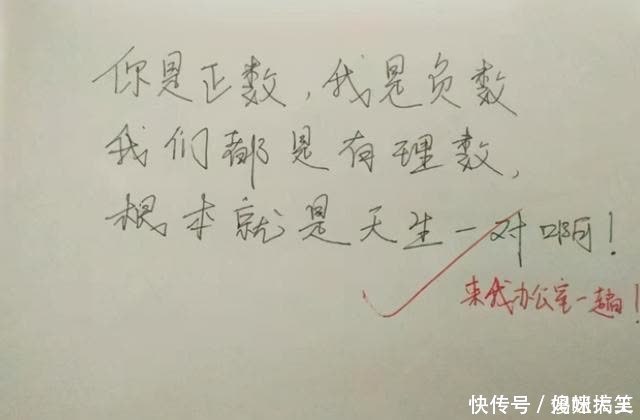 你是正数，我是负数
我们都是有理数，
根本就是天生一对啊！
来我办公室一趟！
快传号／媳妹搞笑